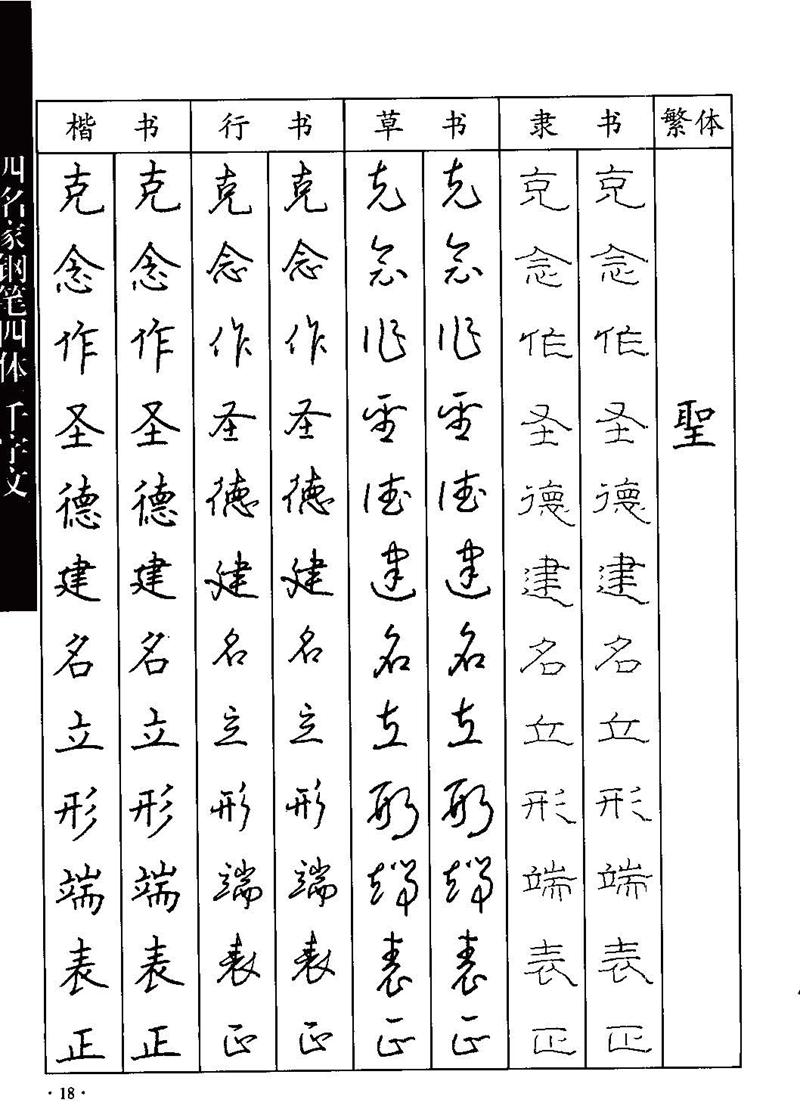 四名家钢笔四体千字文
楷书 行书 草书 隶书 繁体
克 克 克 克 克 克 克 克
念 念 念 念 念 念 念 念
作 作 作 作 作 作 作 作
圣 圣 圣 圣 圣 圣 圣 圣 聖
德 德 德 德 德 德 德 德
建 建 建 建 建 建 建 建
名 名 名 名 名 名 名 名
立 立 立 立 立 立 立 立
形 形 形 形 形 形 形 形
端 端 端 端 端 端 端 端
表 表 表 表 表 表 表 表
正 正 正 正 正 正 正 正
·18·